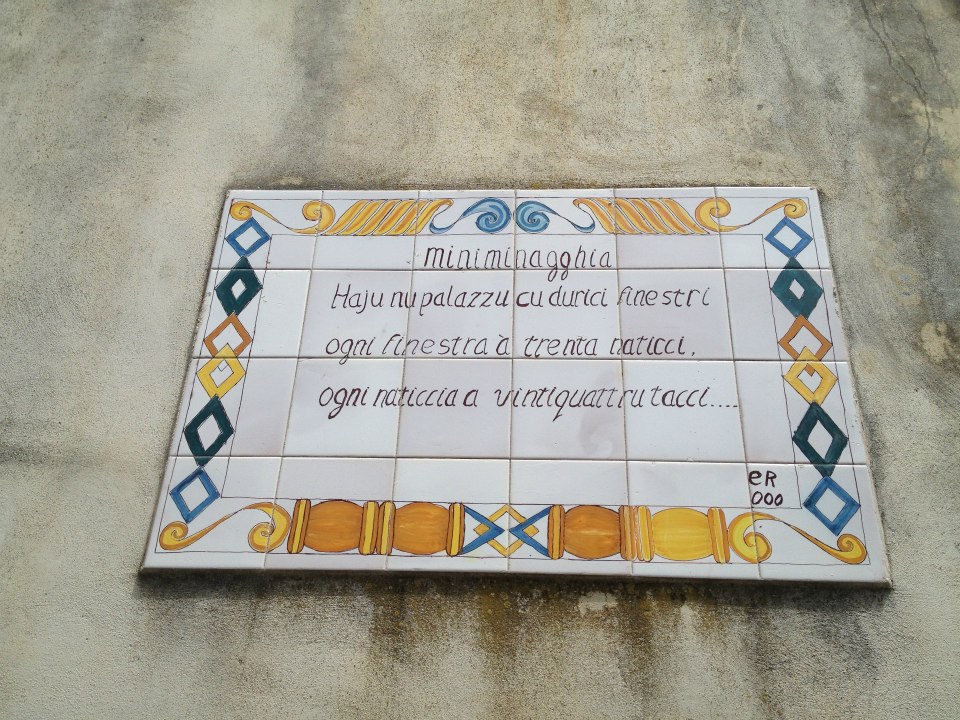 miniminagghia
Haju nu palazzu cu durici finestri
ogni finestra à trenta naticci,
ogni naticcia a vintiquattru tacci....
eR
000